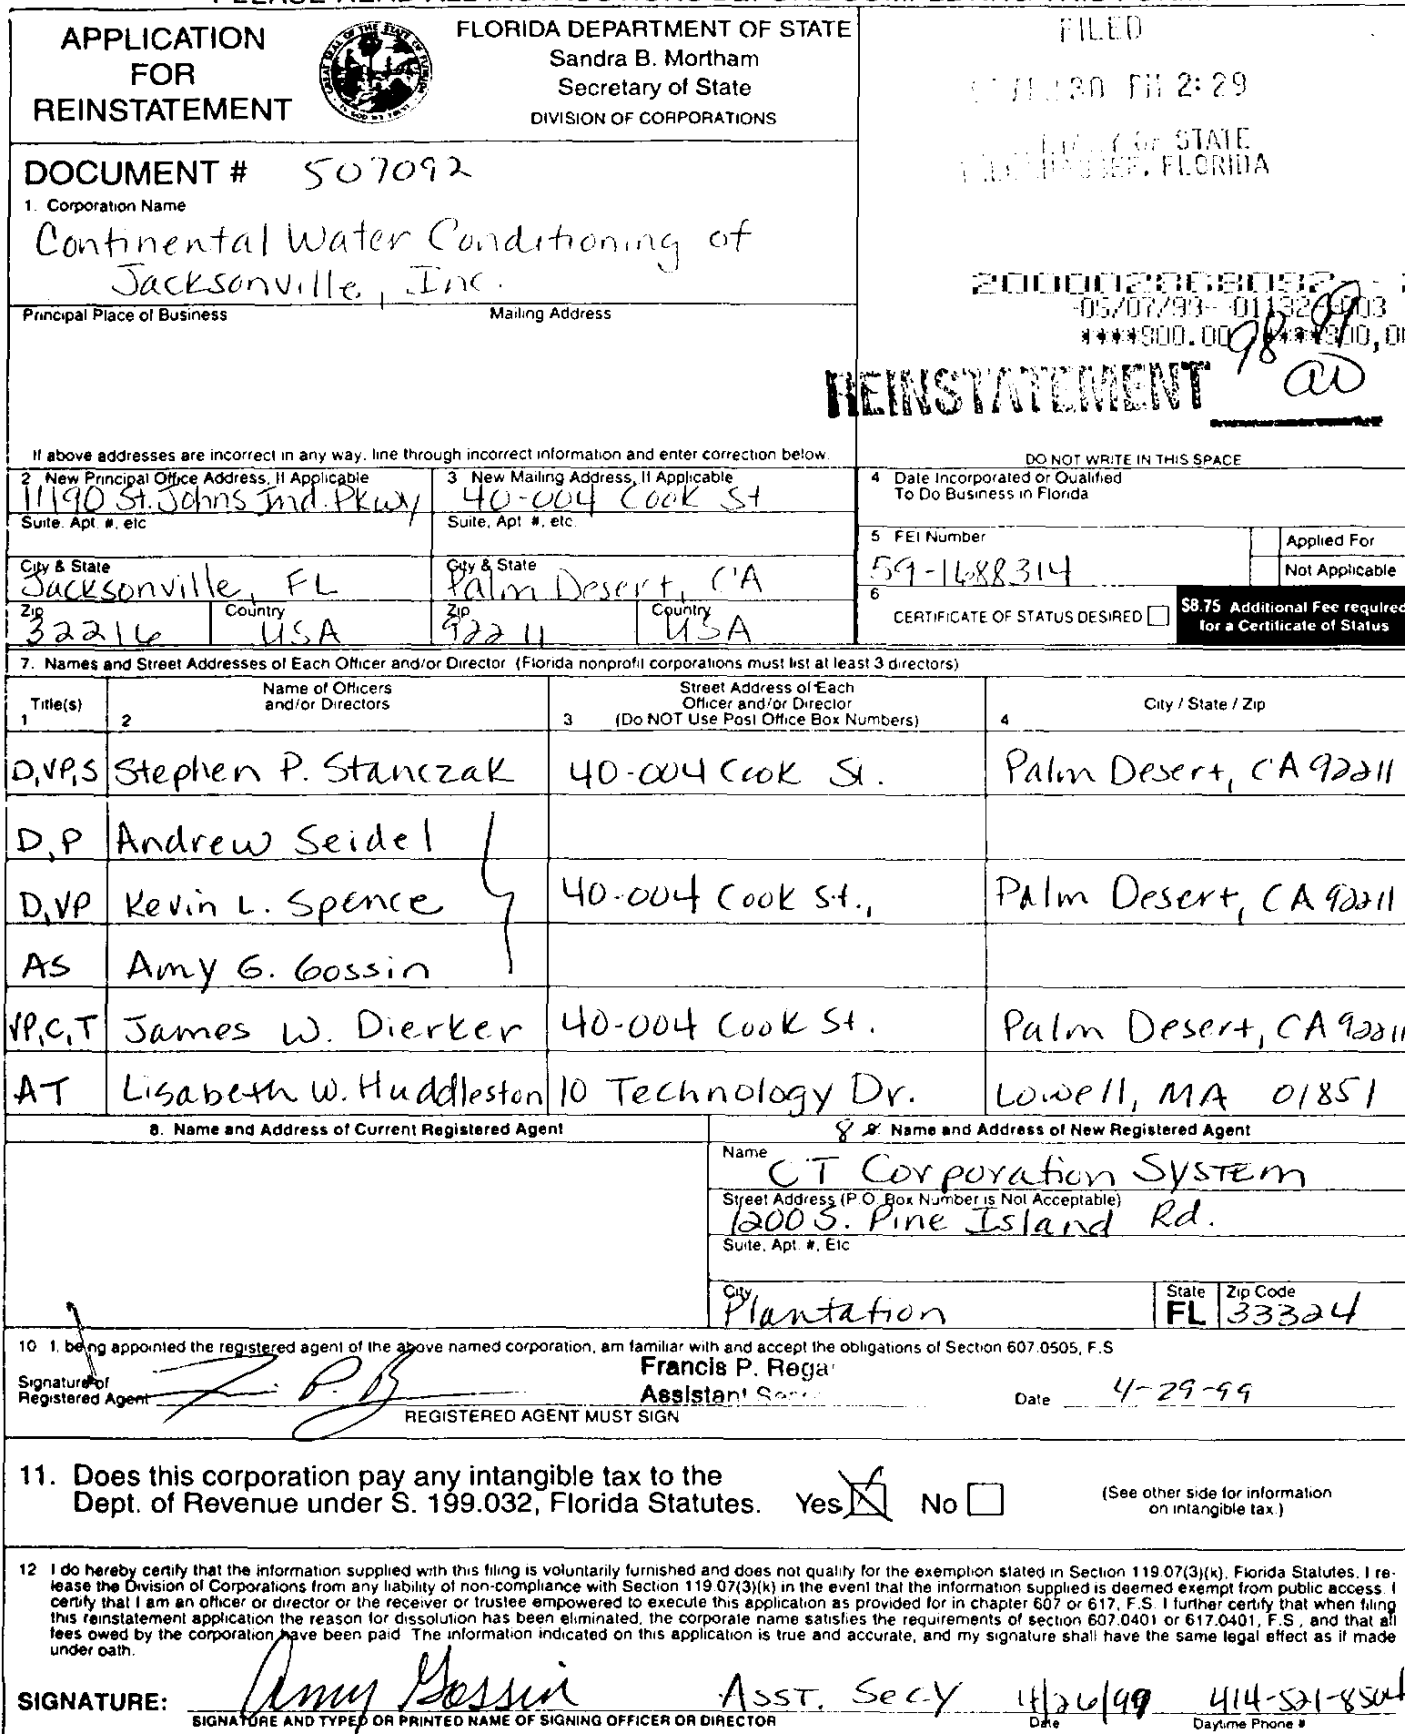 PLEASE READ ALL INSTRUCTIONS BEFORE COMPLETING THIS FORM
APPLICATION
FOR
REINSTATEMENT
FLORIDA DEPARTMENT OF STATE
Sandra B. Mortham
Secretary of State
DIVISION OF CORPORATIONS
FILED
PM 2:29
OF STATE
FLORIDA
DOCUMENT # 507092
1. Corporation Name
Continental Water Conditioning of
Jacksonville, Inc.
Principal Place of Business
Mailing Address
****900.00
98-99
REINSTATEMENT
If above addresses are incorrect in any way, line through incorrect information and enter correction below.
DO NOT WRITE IN THIS SPACE
2 New Principal Office Address, If Applicable
11190 St. Johns Ind. Pkwy
3 New Mailing Address, If Applicable
40-004 Cook St
4 Date Incorporated or Qualified
To Do Business in Florida
Suite. Apt #, etc
Suite, Apt #, etc.
5 FEI Number
59-1688314
Applied For
Not Applicable
City & State
Jacksonville, FL
City & State
Palm Desert, CA
6
CERTIFICATE OF STATUS DESIRED
$8.75 Additional Fee required
for a Certificate of Status
Zip
32216
Country
USA
Zip
92211
Country
USA
7. Names and Street Addresses of Each Officer and/or Director (Florida nonprofit corporations must list at least 3 directors)
Title(s)
1
Name of Officers
and/or Directors
2
Street Address of Each
Officer and/or Director
3 (Do NOT Use Post Office Box Numbers)
City / State / Zip
4
D,VP,S Stephen P. Stanczak 40-004 Cook St. Palm Desert, CA 92211
D,P Andrew Seidel
D,VP Kevin L. Spence 40-004 Cook St., Palm Desert, CA 92211
AS Amy G. Gossin
VP,C,T James W. Dierker 40-004 Cook St. Palm Desert, CA 92211
AT Lisabeth W. Huddleston 10 Technology Dr. Lowell, MA 01851
8. Name and Address of Current Registered Agent
8 9. Name and Address of New Registered Agent
Name
CT Corporation System
Street Address (P.O. Box Number is Not Acceptable)
1200 S. Pine Island Rd.
Suite, Apt. #, Etc
City
Plantation
State
FL
Zip Code
33324
10 I, being appointed the registered agent of the above named corporation, am familiar with and accept the obligations of Section 607.0505, F.S
Francis P. Rega
Assistant
Signature of
Registered Agent
Date 4-29-99
REGISTERED AGENT MUST SIGN
11. Does this corporation pay any intangible tax to the
Dept. of Revenue under S. 199.032, Florida Statutes. Yes No
(See other side for information
on intangible tax.)
12 I do hereby certify that the information supplied with this filing is voluntarily furnished and does not qualify for the exemption stated in Section 119.07(3)(k), Florida Statutes. I re-
lease the Division of Corporations from any liability of non-compliance with Section 119.07(3)(k) in the event that the information supplied is deemed exempt from public access. I
certify that I am an officer or director or the receiver or trustee empowered to execute this application as provided for in chapter 607 or 617, F.S. I further certify that when filing
this reinstatement application the reason for dissolution has been eliminated, the corporate name satisfies the requirements of section 607.0401 or 617.0401, F.S, and that all
fees owed by the corporation have been paid The information indicated on this application is true and accurate, and my signature shall have the same legal effect as if made
under oath.
SIGNATURE: Amy Gossin Asst. Secy 4/26/99 414-521-8504
SIGNATURE AND TYPED OR PRINTED NAME OF SIGNING OFFICER OR DIRECTOR
Date
Daytime Phone #